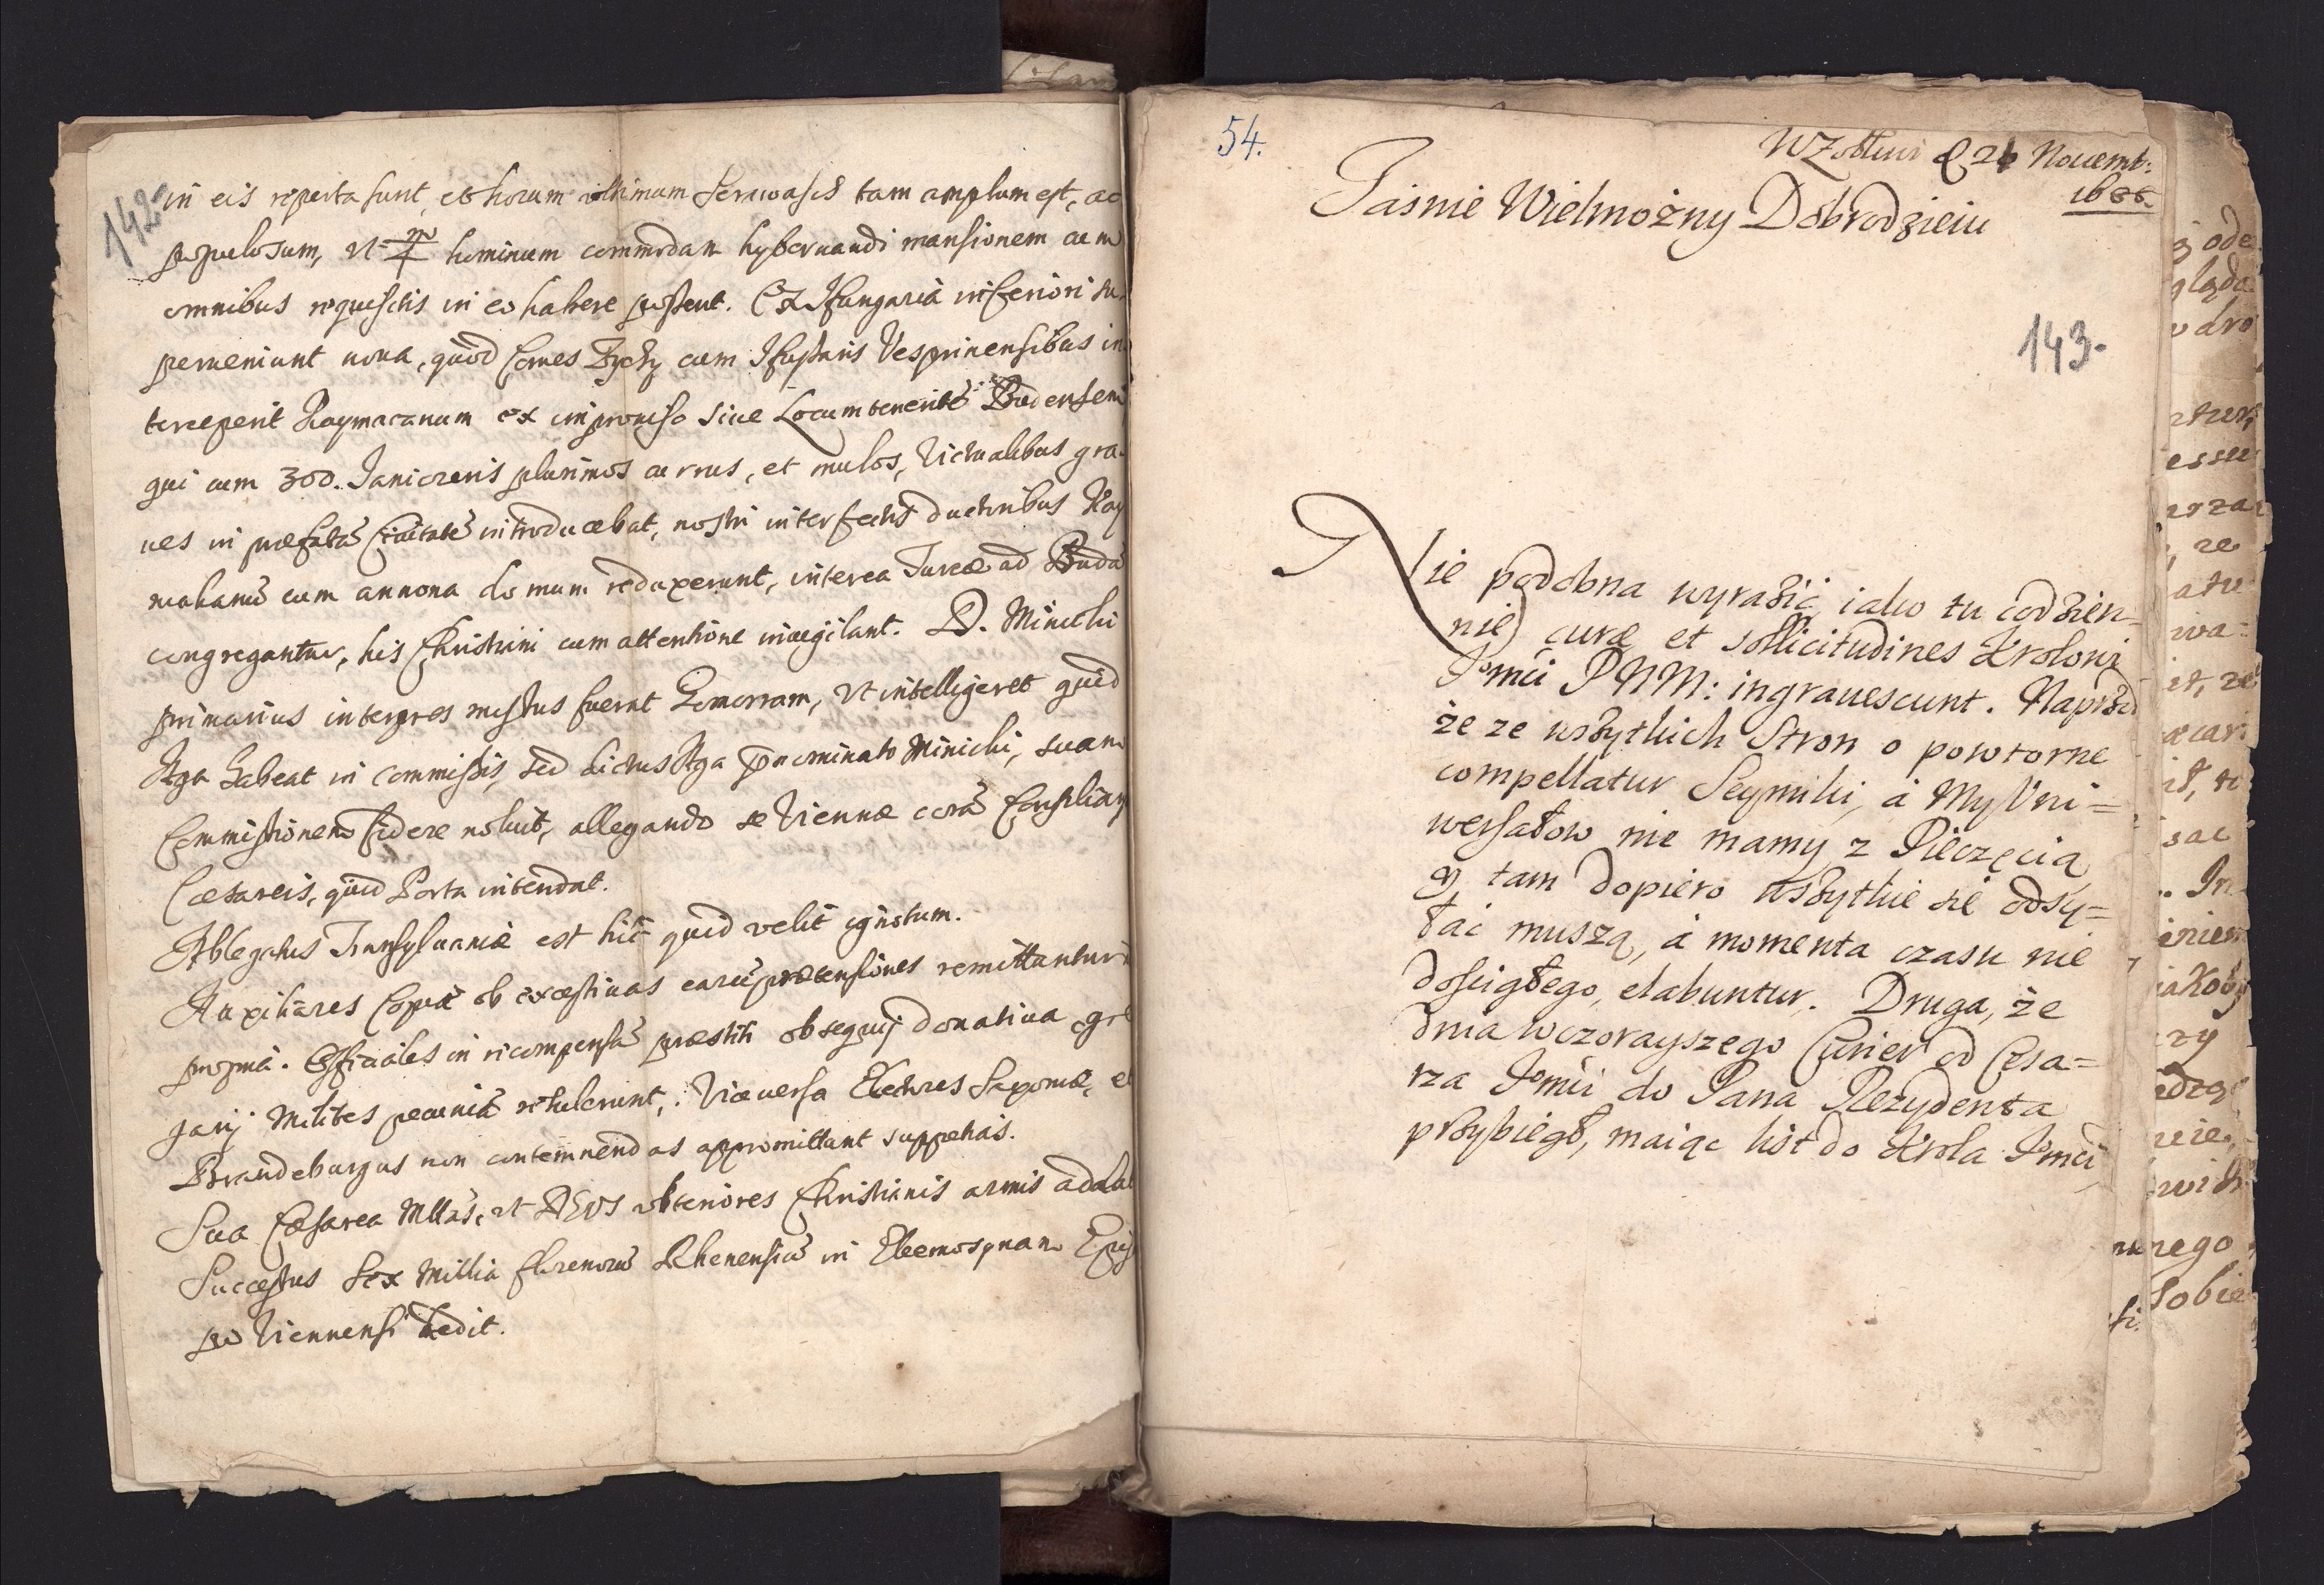 142.
in eis reperta sunt, et horum ultimum Serwasch tam amplum est, ac
populosum, vt hominum commodam hybernandi mansionem cum
omnibus requisitis in eo habere possent. Ex Hungaria inferiori su
perueniunt noua, quod Comes Zychy cum Hussaris Vesprinensibus in
terceperit Kaymacanum ex improuiso siue Locumtenentē Budensem
qui cum 300. Janiczeris plurimos currus, et mulos, victualibus gra
ues in præfatā Ciuitatē introducebat, nostri interfectis ductoribus Kay
makanū cum annona domum reduxerunt, interea Turcæ ad Budā
congregantur, his Christiani cum attentione inuigilant. D. Minichi
primarius interpres missus fuerat Comorram, vt intelligeret quid
Aga habeat in commissis, sed dictus Aga prænominato Minichi, suam
Commissionem fidere noluit, allegando se Viennæ corā Consiliarijs
Cæsareis, quid Porta intendat.
Ablegatus Transyluaniæ est hic quid velit ignotum.
Auxiliares Copiæ ob excessiuas earū prætensiones remittuntur
propria. Officiales in recompensā præstiti obsequij donatiua gre
garij Milites pecuniā retulerunt, Vice uersa Electores Saxoniæ, et
Brandeburgus non contemnendas appromittunt suppetias.
Sua Cæsarea Mttas, vt DEVS vlteriores Christianis armis addat
Successus Sex Millia florenorū Rhenensiū in Eleemosynam Epis
po Viennensi dedit.
54.
W Zołkwi D 26 Nouemb:
1686.
Jasnie Wielmożny Dobrodzieiu
143.
Nie podobna wyrazić, iako tu codzien=
nie curæ et sollicitudines Krolowi
Jmći PNM: ingrauescunt. Naprzod
że ze wszytkich Stron o powtorne
compellatur Seymiki, a My Vni=
wersałow nie mamy z Pieczęcią
y tam dopiero wszytkie się odsy=
łac muszą, a momenta czasu nie
doscigłego, elabuntur. Druga, że
dnia wczorayszego Curier od Cesa=
rza Jmći do Pana Rezydenta
przybiegł, maiąc list do Krola Jmći